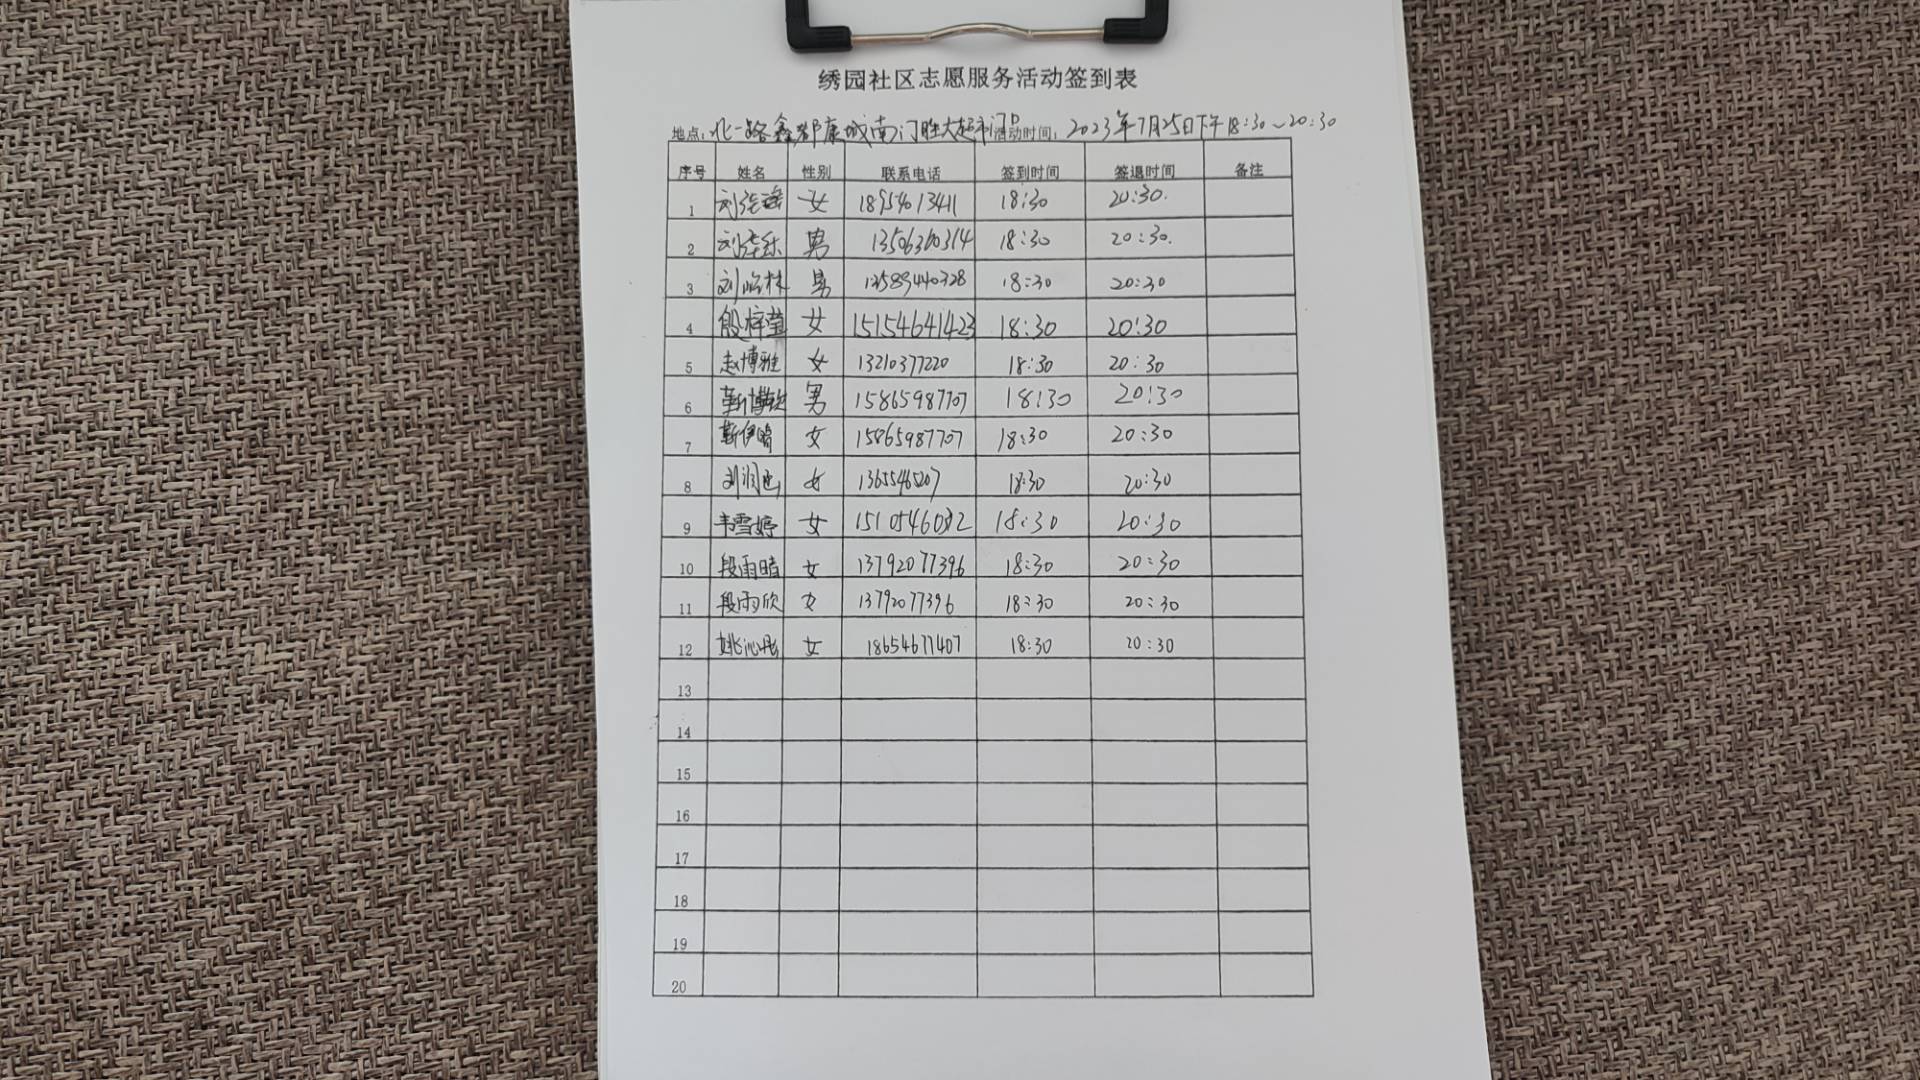 绣园社区志愿服务活动签到表
地点：北一路鑫都康城南门胜大超市门口 活动时间：2023年7月25日下午18:30~20:30
序号 姓名 性别 联系电话 签到时间 签退时间 备注
1 女 18954013411 18:30 20:30.
2 男 13506360314 18:30 20:30.
3 男 13589440328 18:30 20:30
4 殷梓莹 女 15154641423 18:30 20:30
5 赵博雅 女 13210377220 18:30 20:30
6 男 15865987707 18:30 20:30
7 女 15865987707 18:30 20:30
8 女 18:30 20:30
9 韦雪婷 女 18:30 20:30
10 段雨晴 女 13792077396 18:30 20:30
11 段雨欣 女 13792077396 18:30 20:30
12 女 18654677407 18:30 20:30
13
14
15
16
17
18
19
20